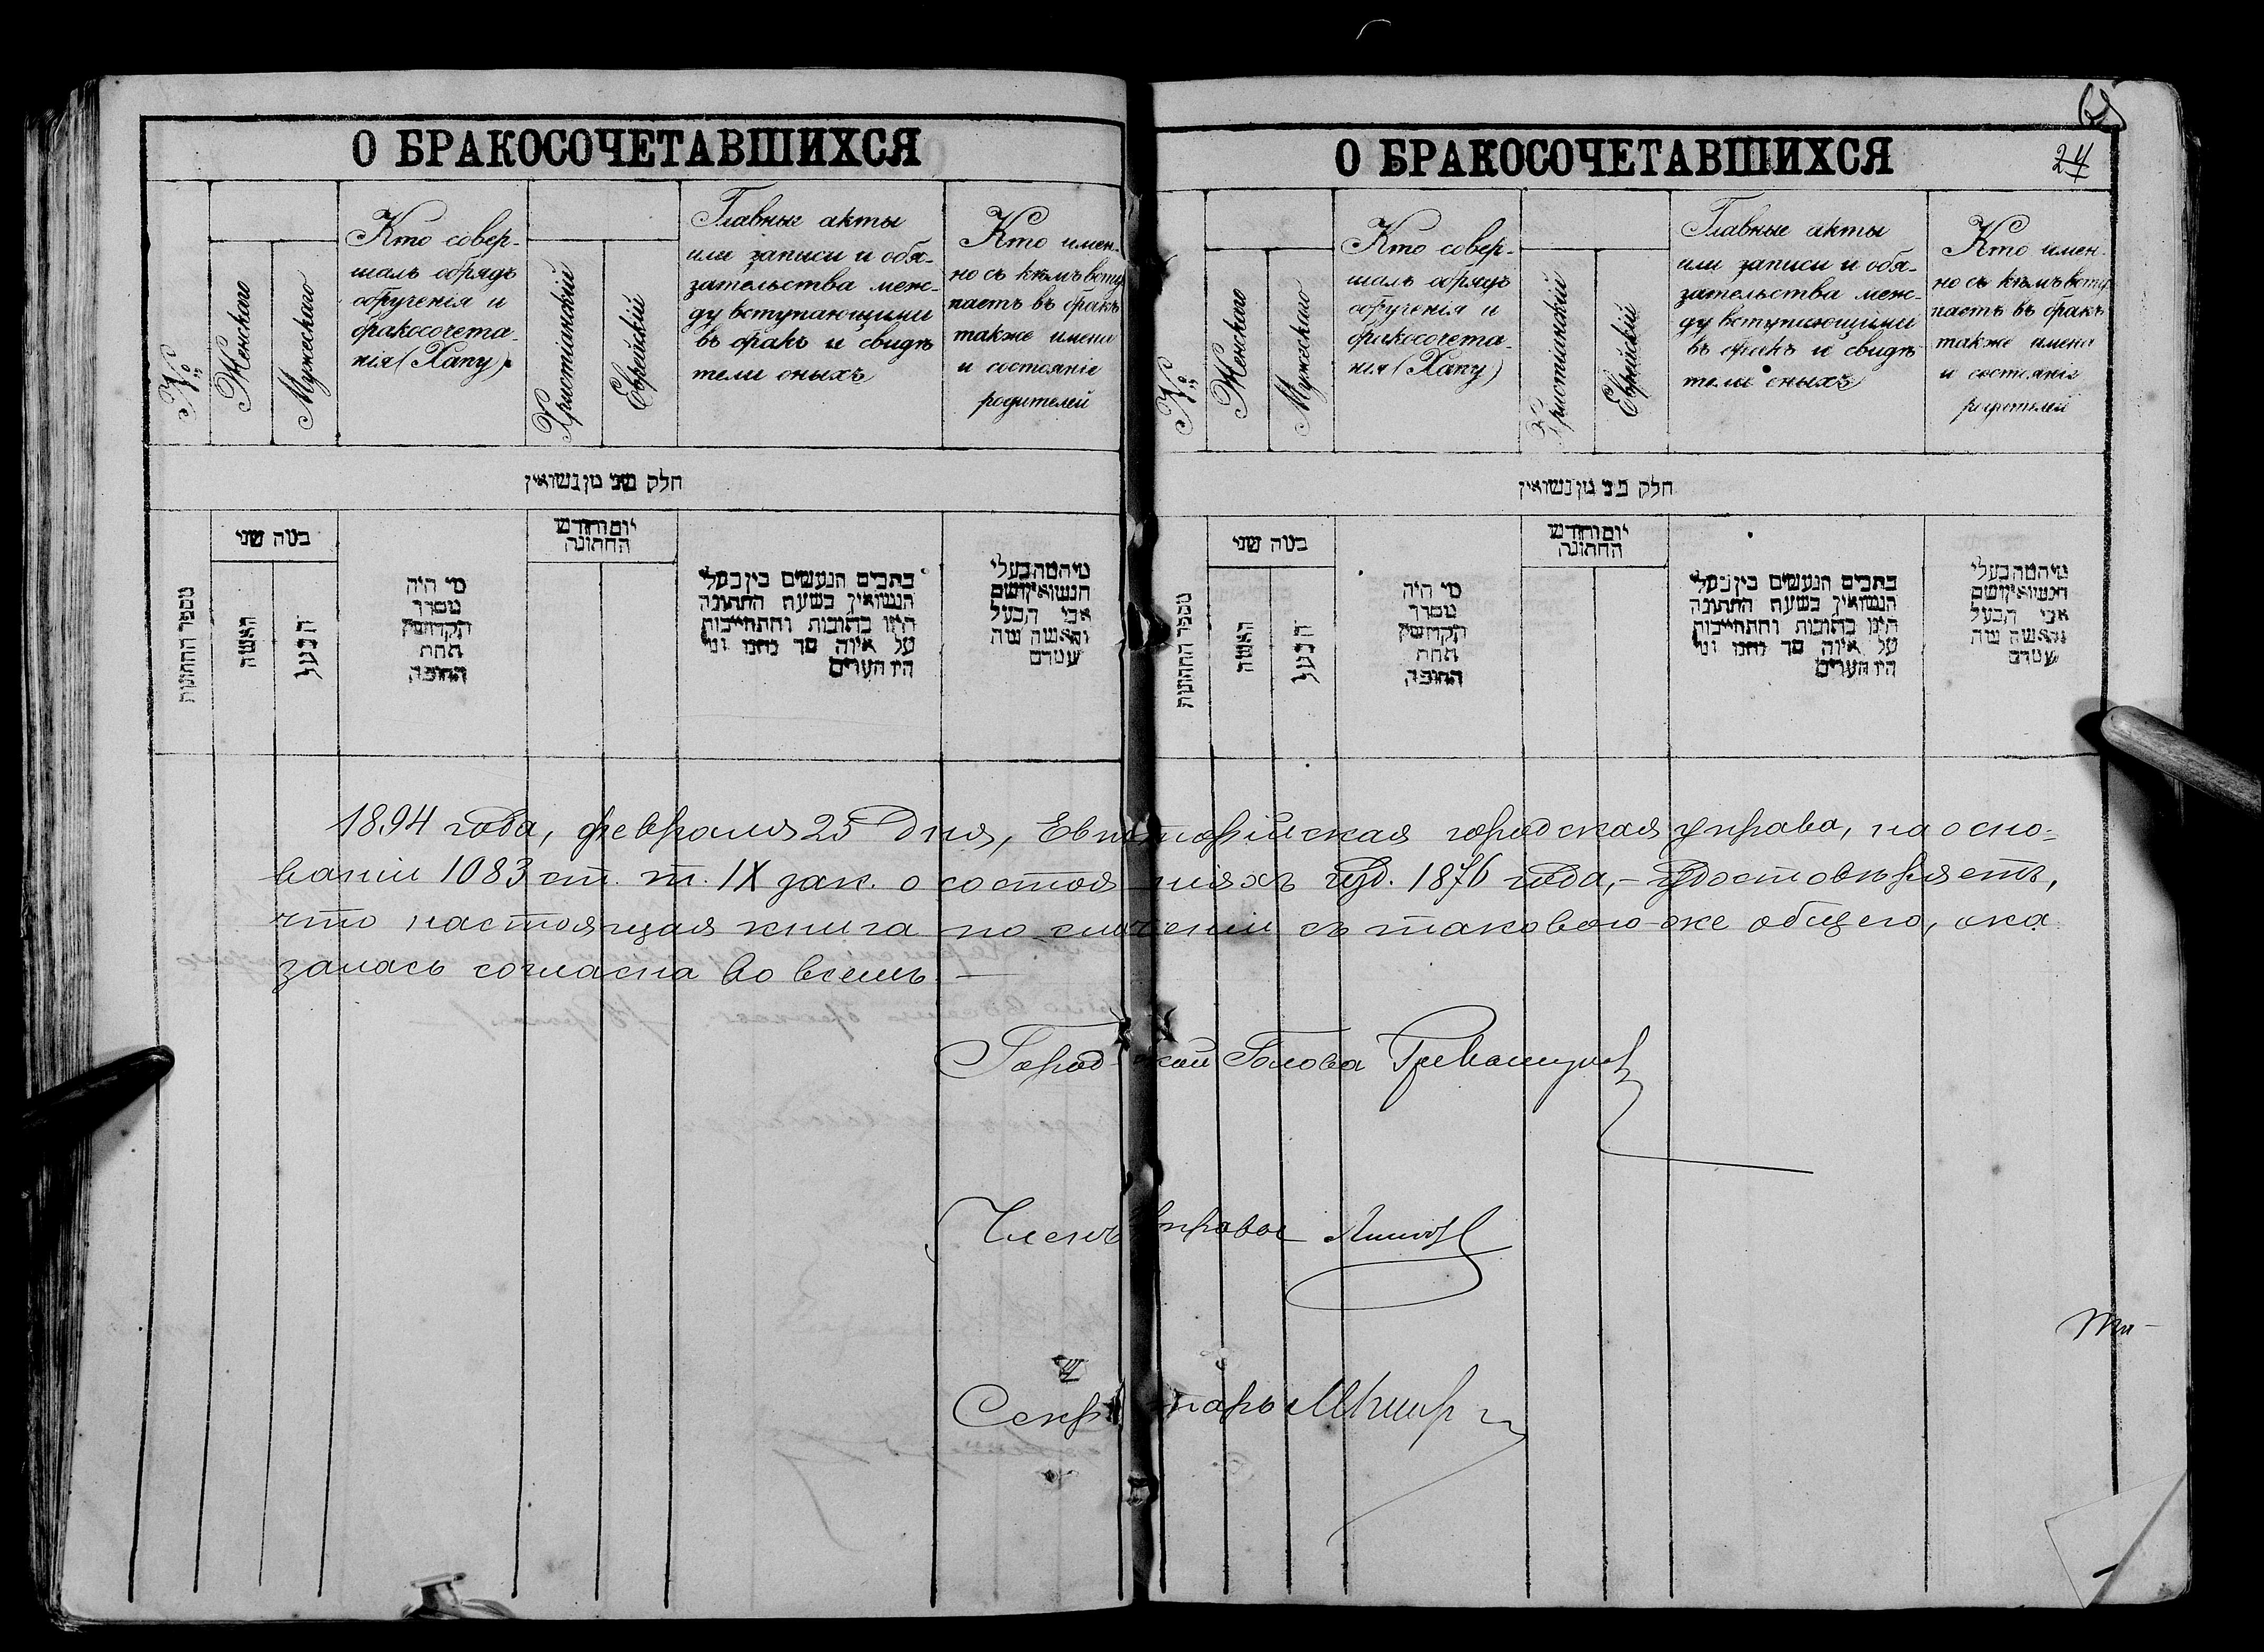 О БРАКОСОЧЕТАВШИХСЯ
№
Женскаго
Мужескаго
Кто совер-
шалъ обрядъ
обрученія и
бракосочета-
нія (Хапу)
Христіанскій
Еврейскій
Главные акты
или записи и обя-
зательства меж-
ду вступающими
въ бракъ и свидѣ
тели оныхъ
Кто имен-
но съ кѣмъ всту
паетъ въ бракъ
также имена
и состояніе
родителей
חלק שני מן נשואין
מספר החתונות
כמה שני
האשה
הבעל
מי היה
מסדר
הקדושין
תחת
החופה
יום וחודש
החתונה
כתבים הנעשים בין בעלי
הנשואין בשעת החתונה
היינו כתובות והתחייבות
על איזה סך נתנו ומי
היו העדים
מי המה בעלי
הנשואין ושם
אבי הבעל
והאשה מה
שמם
О БРАКОСОЧЕТАВШИХСЯ
24
№
Женскаго
Мужескаго
Кто совер-
шалъ обрядъ
обрученія и
бракосочета-
нія (Хапу)
Христіанскій
Еврейскій
Главные акты
или записи и обя-
зательства меж-
ду вступающими
въ бракъ и свидѣ
тели оныхъ
Кто имен-
но съ кѣмъ всту
паетъ въ бракъ
также имена
и состояніе
родителей
חלק שני מן נשואין
מספר החתונות
כמה שני
האשה
הבעל
מי היה
מסדר
הקדושין
תחת
החופה
יום וחודש
החתונה
כתבים הנעשים בין בעלי
הנשואין בשעת החתונה
היינו כתובות והתחייבות
על איזה סך נתנו ומי
היו העדים
מי המה בעלי
הנשואין ושם
אבי הבעל
והאשה מה
שמם
1894 года, февраля 25 дня, Евпаторійская городская управа, на осно-
ваніи 1083 ст. т. IX зак. о состояніяхъ изд. 1876 года, – удостовѣряетъ,
что настоящая книга по сличеніи съ таковою-же общего, ока
залась согласна во всемъ. –
Городской Голова
Членъ управы
Секретарь